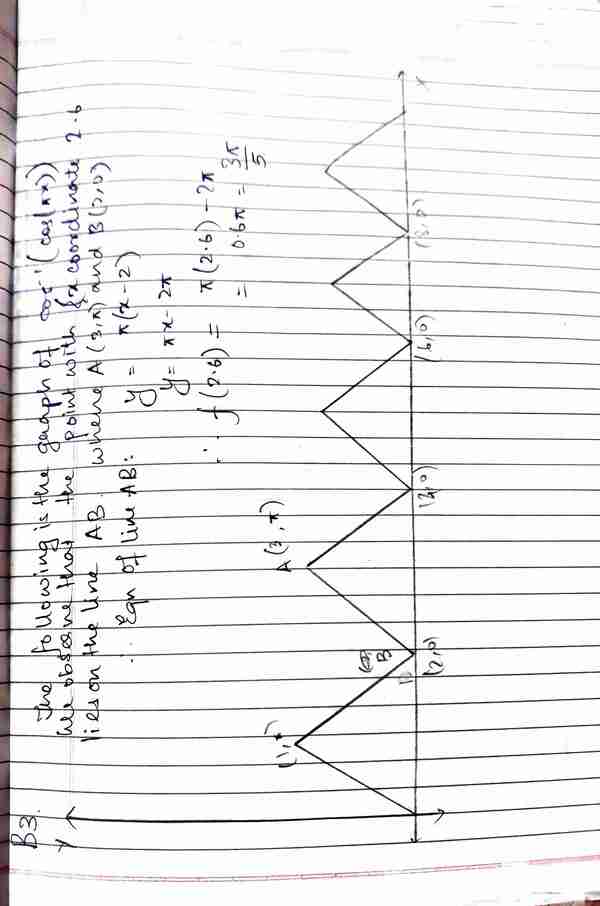 B3.
The following is the graph of cos⁻¹(cos(πx))
We observe that the point with x coordinate 2.6
lies on the line AB. where A(3,π) and B(2,0)
∴ Eqn of line AB: y = π(x-2)
y = πx - 2π
∴ f(2.6) = π(2.6) - 2π
= 0.6π = 3π/5
Y
(1,π)
A (3,π)
B
(2,0)
(4,0)
(6,0)
(8,0)
X